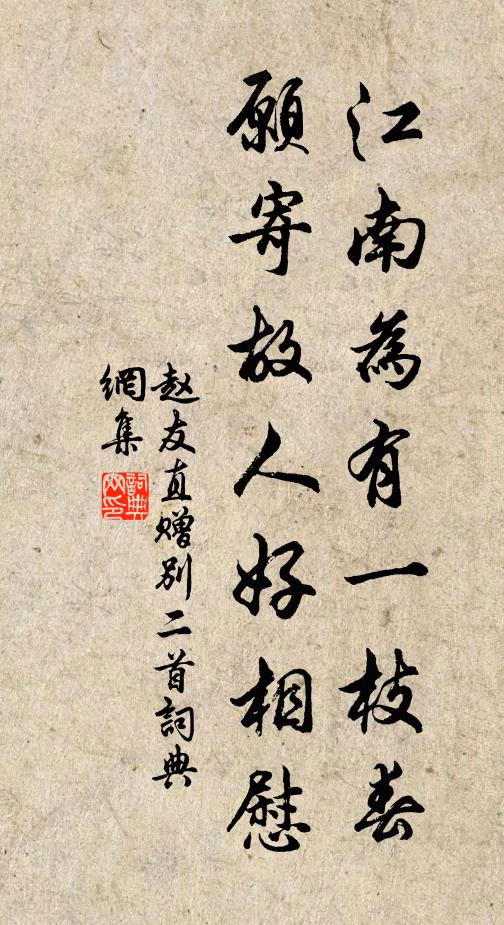 江南為有一枝春
願寄故人好相慰
赵友直贈別二首詞典
網集
詞典
网印